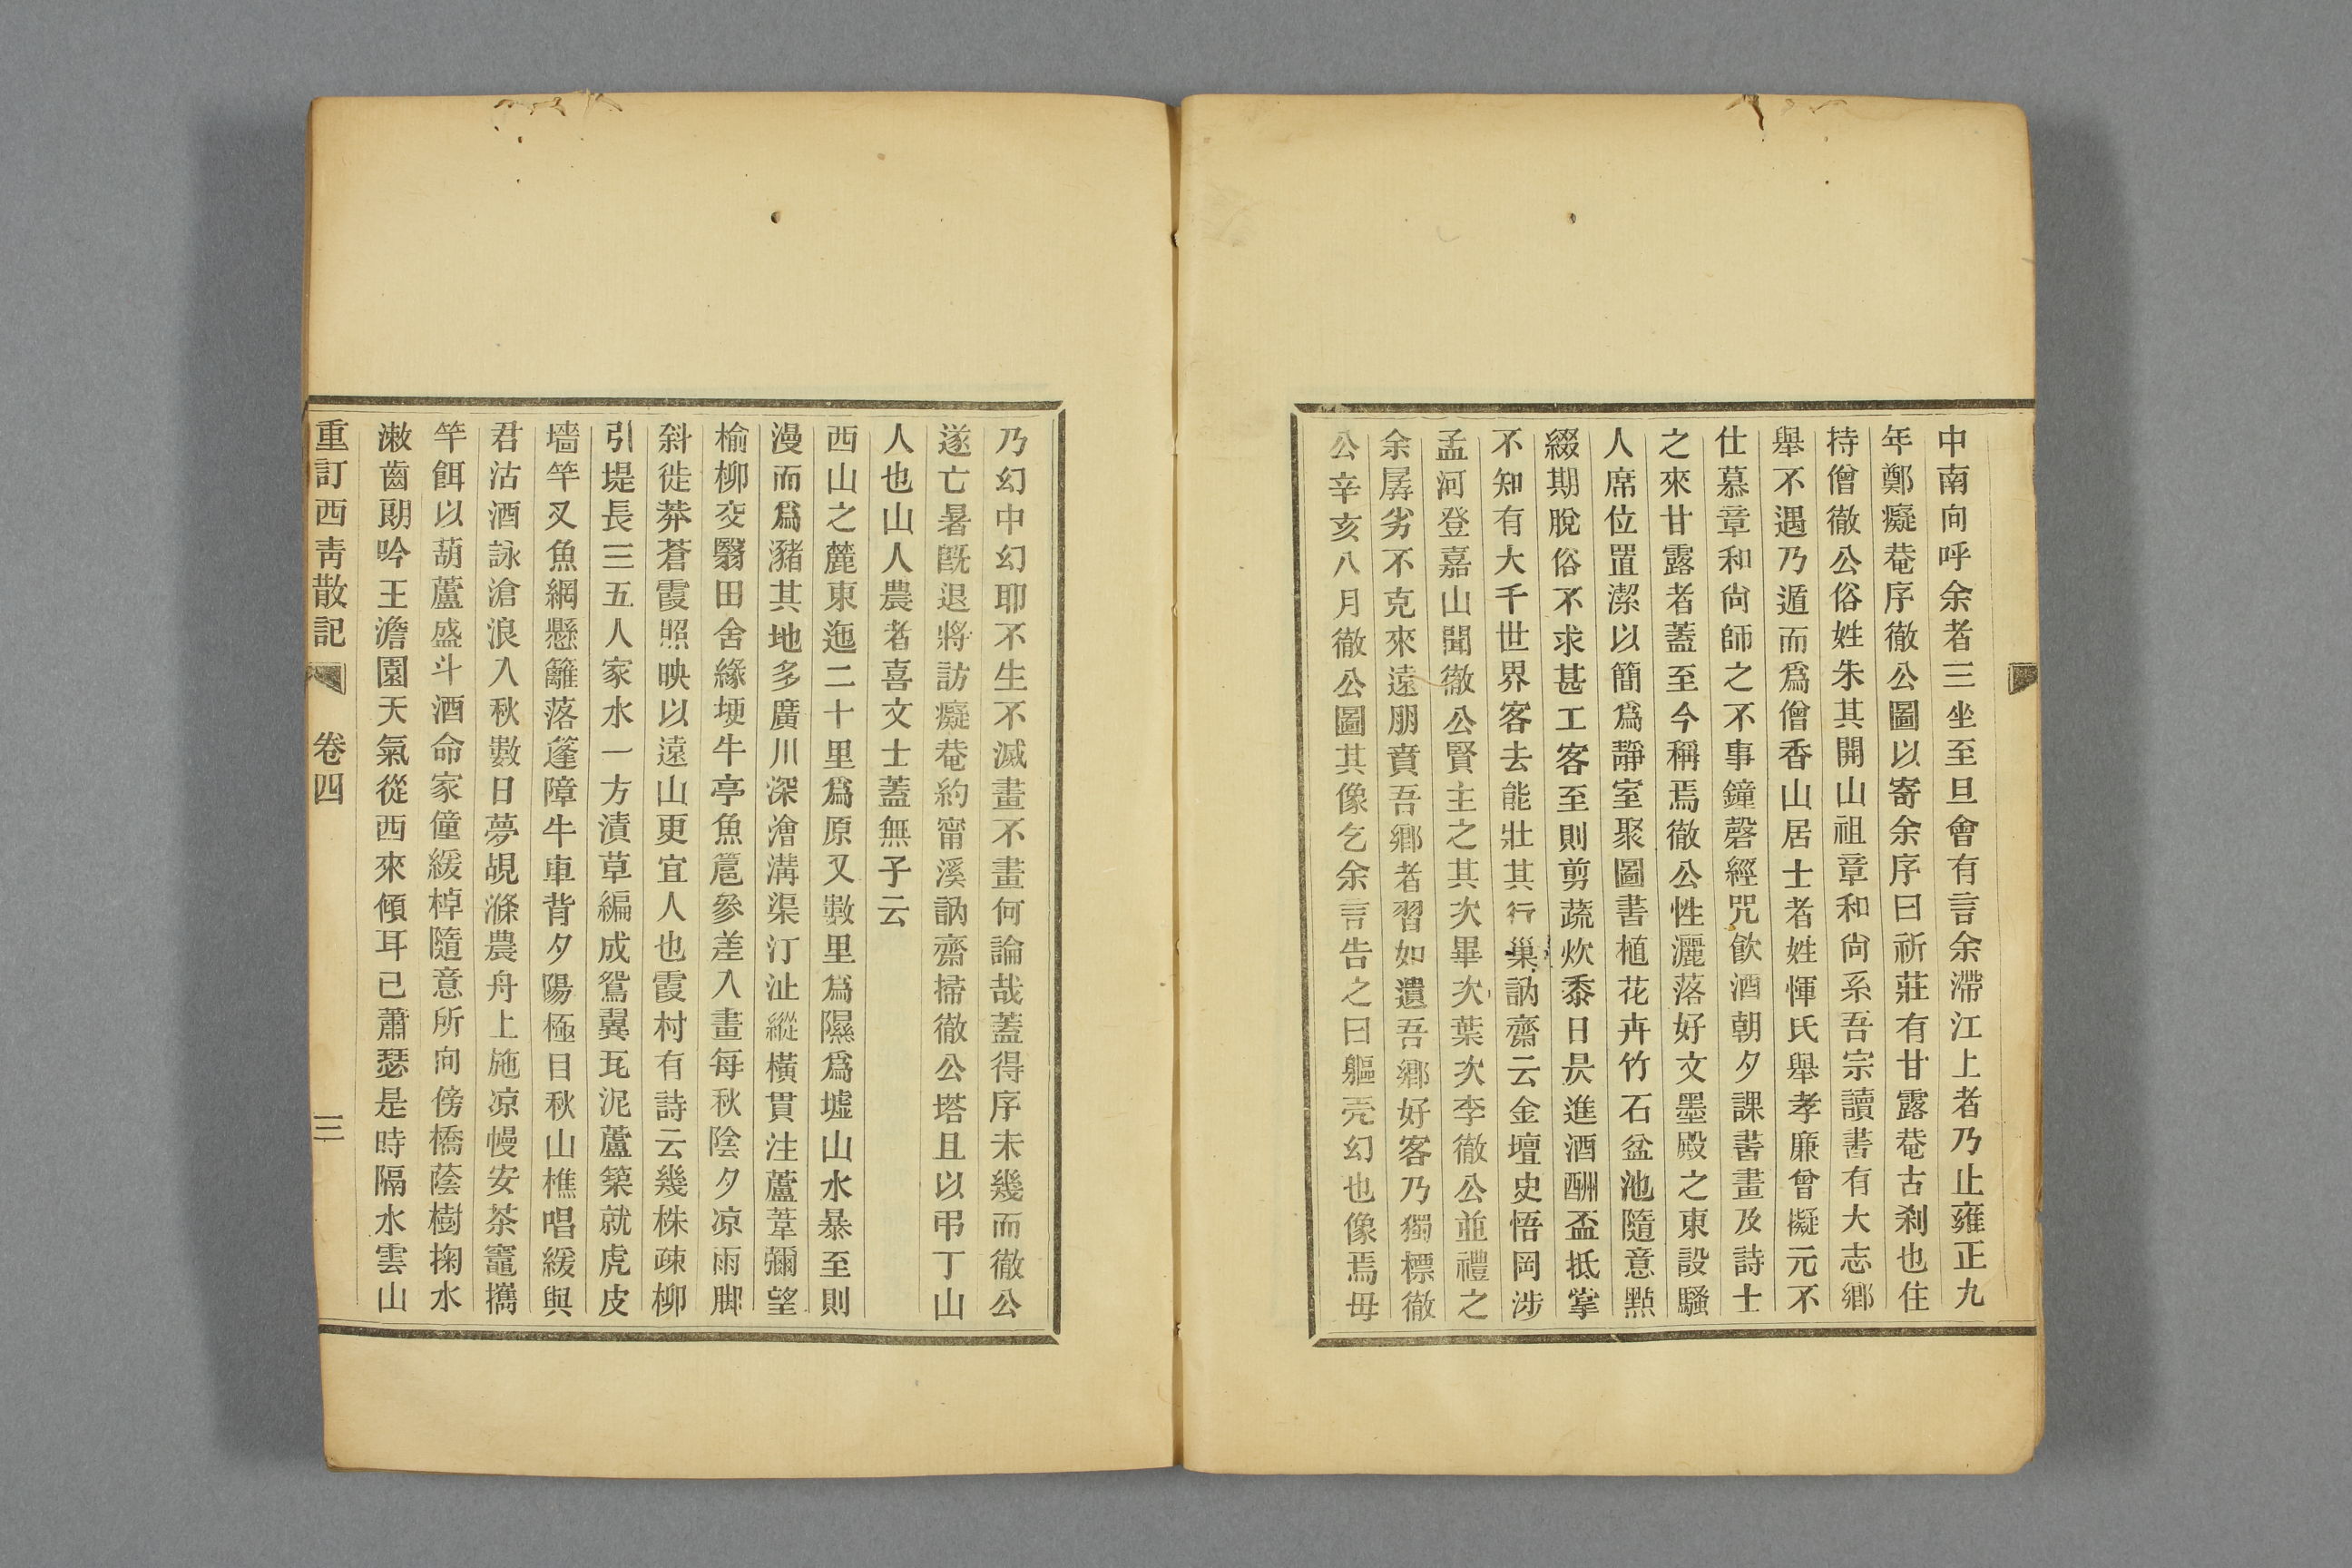 中南向呼余者三坐至旦會有言余滯江上者乃止雍正九
年鄭癡菴序徹公圖以寄余序曰祈莊有甘露菴古刹也住
持僧徹公俗姓朱其開山祖章和尙系吾宗讀書有大志鄉
舉不遇乃遁而爲僧香山居士者姓惲氏舉孝廉曾擬元不
仕慕章和尙師之不事鐘磬經咒飮酒朝夕課書畫及詩士
之來甘露者蓋至今稱焉徹公性灑落好文墨殿之東設騷
人席位置潔以簡爲靜室聚圖書植花卉竹石盆池隨意點
綴期脫俗不求甚工客至則剪蔬炊黍日昃進酒酬盃抵掌
不知有大千世界客去能壯其行巢訥齋云金壇史悟岡涉
孟河登嘉山聞徹公賢主之其次畢次葉次李徹公並禮之
余孱劣不克來遠朋賁吾鄉者習如遺吾鄉好客乃獨標徹
公辛亥八月徹公圖其像乞余言告之曰軀壳幻也像焉毋
乃幻中幻耶不生不滅畫不畫何論哉蓋得序未幾而徹公
遂亡暑旣退將訪癡菴約甯溪訥齋掃徹公塔且以弔丁山
人也山人農者喜文士蓋無子云
西山之麓東迤二十里爲原又數里爲隰爲墟山水暴至則
漫而爲豬其地多廣川深澮溝渠汀沚縱橫貫注蘆葦彌望
榆柳交翳田舍緣埂牛亭魚扈參差入畫每秋陰夕凉雨脚
斜徙莽蒼霞照映以遠山更宜人也霞村有詩云幾株疎柳
引堤長三五人家水一方漬草編成鴛翼瓦泥蘆築就虎皮
墻竿叉魚網懸籬落篷障牛車背夕陽極目秋山樵唱緩與
君沽酒詠滄浪入秋數日夢覘滌農舟上施凉幔安茶竈攜
竿餌以葫蘆盛斗酒命家僮緩棹隨意所向傍橋蔭樹掬水
漱齒朗吟王澹園天氣從西來傾耳已蕭瑟是時隔水雲山
重訂西靑散記 卷四 三